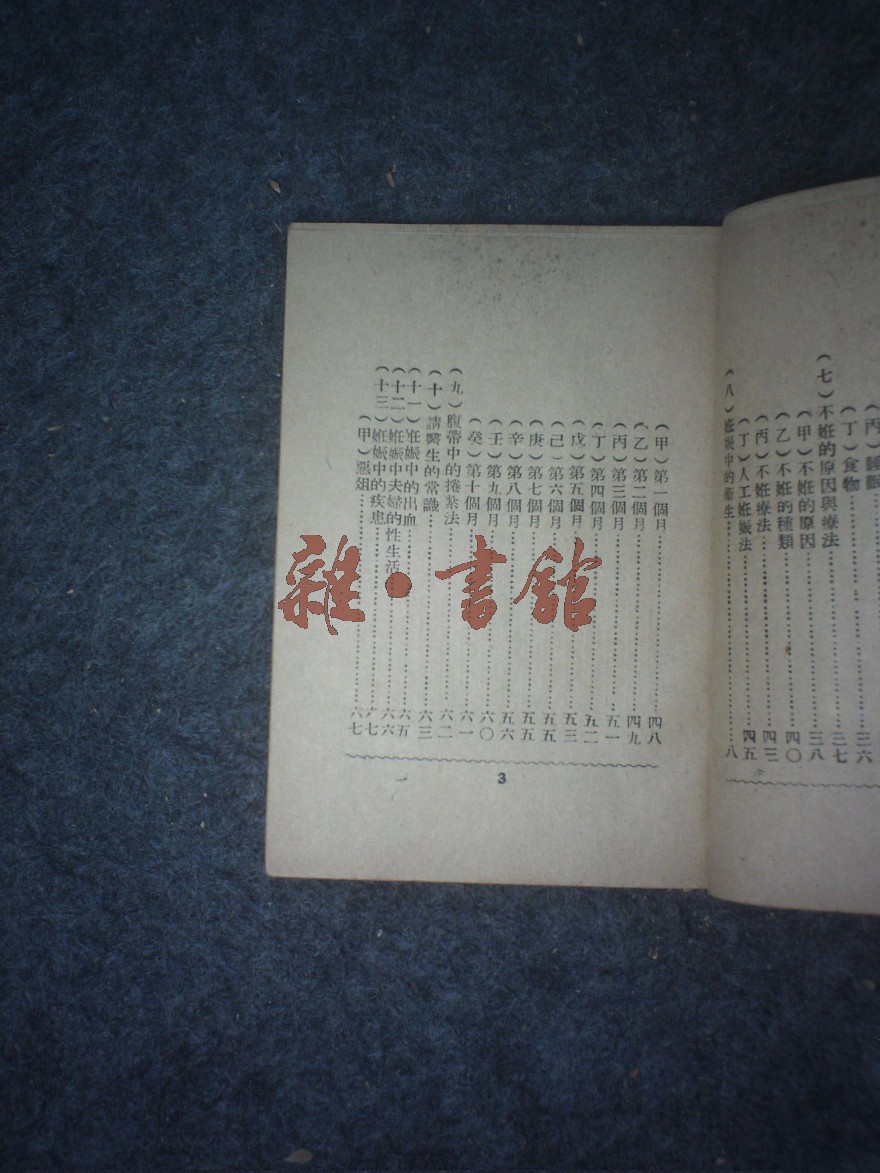 (丙)睡眠
(丁)食物……三七
(七)不妊的原因與療法
(甲)不妊的原因……三八
(乙)不妊的種類……四〇
(丙)不妊療法……四三
(丁)人工妊娠法……四五
(八)妊娠中的衞生……八
(甲)第一個月……四八
(乙)第二個月……四九
(丙)第三個月……五一
(丁)第四個月……五二
(戊)第五個月……五三
(己)第六個月……五五
(庚)第七個月……五五
(辛)第八個月……五六
(壬)第九個月……六〇
(癸)第十個月……六一
(九)腹帶中的捲紮法……六二
(十)請醫生的常識……六三
(十一)妊娠中的出血……六五
(十二)妊娠中夫婦的性生活……六六
(十三)妊娠中的疾患……六七
(甲)惡俎……六七
3
雜·書館